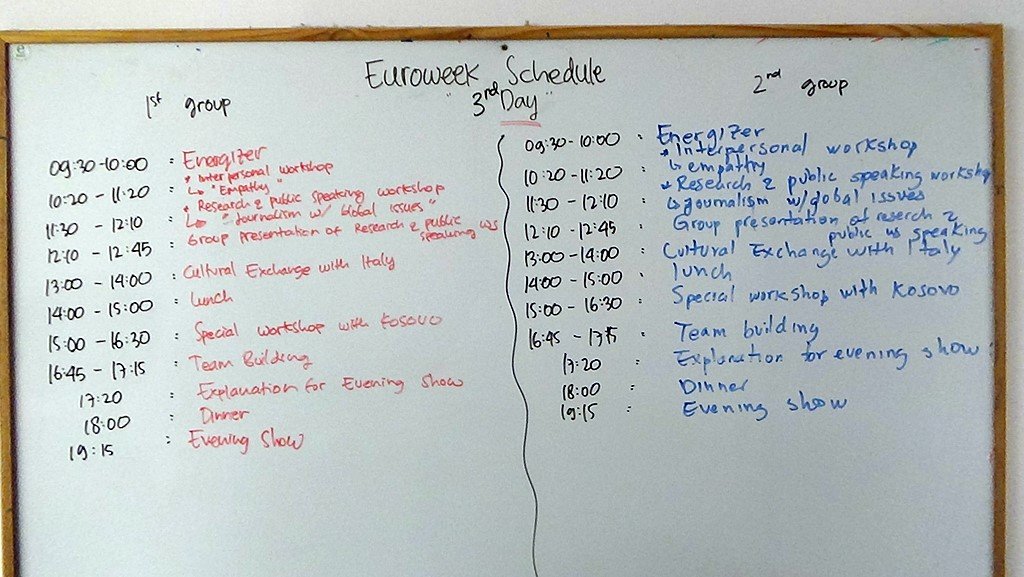 Euroweek Schedule
"3rd Day"
1st group
09:30-10:00 : Energizer
10:20 - 11:20 : * Interpersonal workshop
↳ "Empathy"
11:30 - 12:10 : * Research & public speaking workshop
↳ "Journalism w/ Global Issues"
12:10 - 12:45 : Group Presentation of Research & public
speaking ws
13:00 - 14:00 : Cultural Exchange with Italy
14:00 - 15:00 : Lunch
15:00 - 16:30 : Special workshop with Kosovo
16:45 - 17:15 : Team Building
17:20 : Explanation for Evening Show
18:00 : Dinner
19:15 : Evening Show
2nd group
09:30 - 10:00 : Energizer
10:20 - 11:20 : * Interpersonal workshop
↳ empathy
11:30 - 12:10 : * Research & public speaking workshop
↳ journalism w/global issues
12:10 - 12:45 : Group presentation of reserch &
public ws speaking
13:00 - 14:00 : Cultural Exchange with Italy
14:00 - 15:00 : lunch
15:00 - 16:30 : Special workshop with Kosovo
16:45 - 17:15 : Team building
17:20 : Explanation for evening show
18:00 : Dinner
19:15 : Evening show